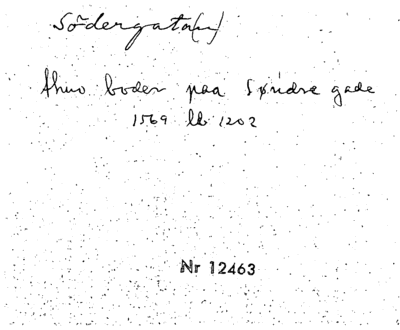 Södergata(n)
thuo boder paa Søndre gade
1569 lb 1202
Nr 12463